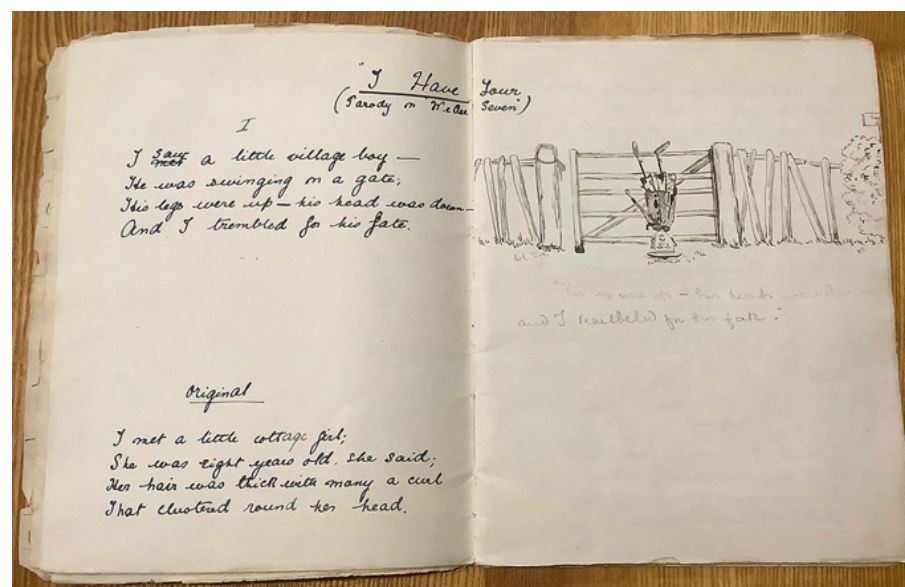 "I Have Four
(Parody on "We Are Seven")
I
I saw met a little village boy —
He was swinging on a gate;
His legs were up — his head was down —
And I trembled for his fate.
Original
I met a little cottage girl;
She was eight years old. She said;
Her hair was thick with many a curl
That clustered round her head.
"His legs were up — his head
and I trembled for his fate."